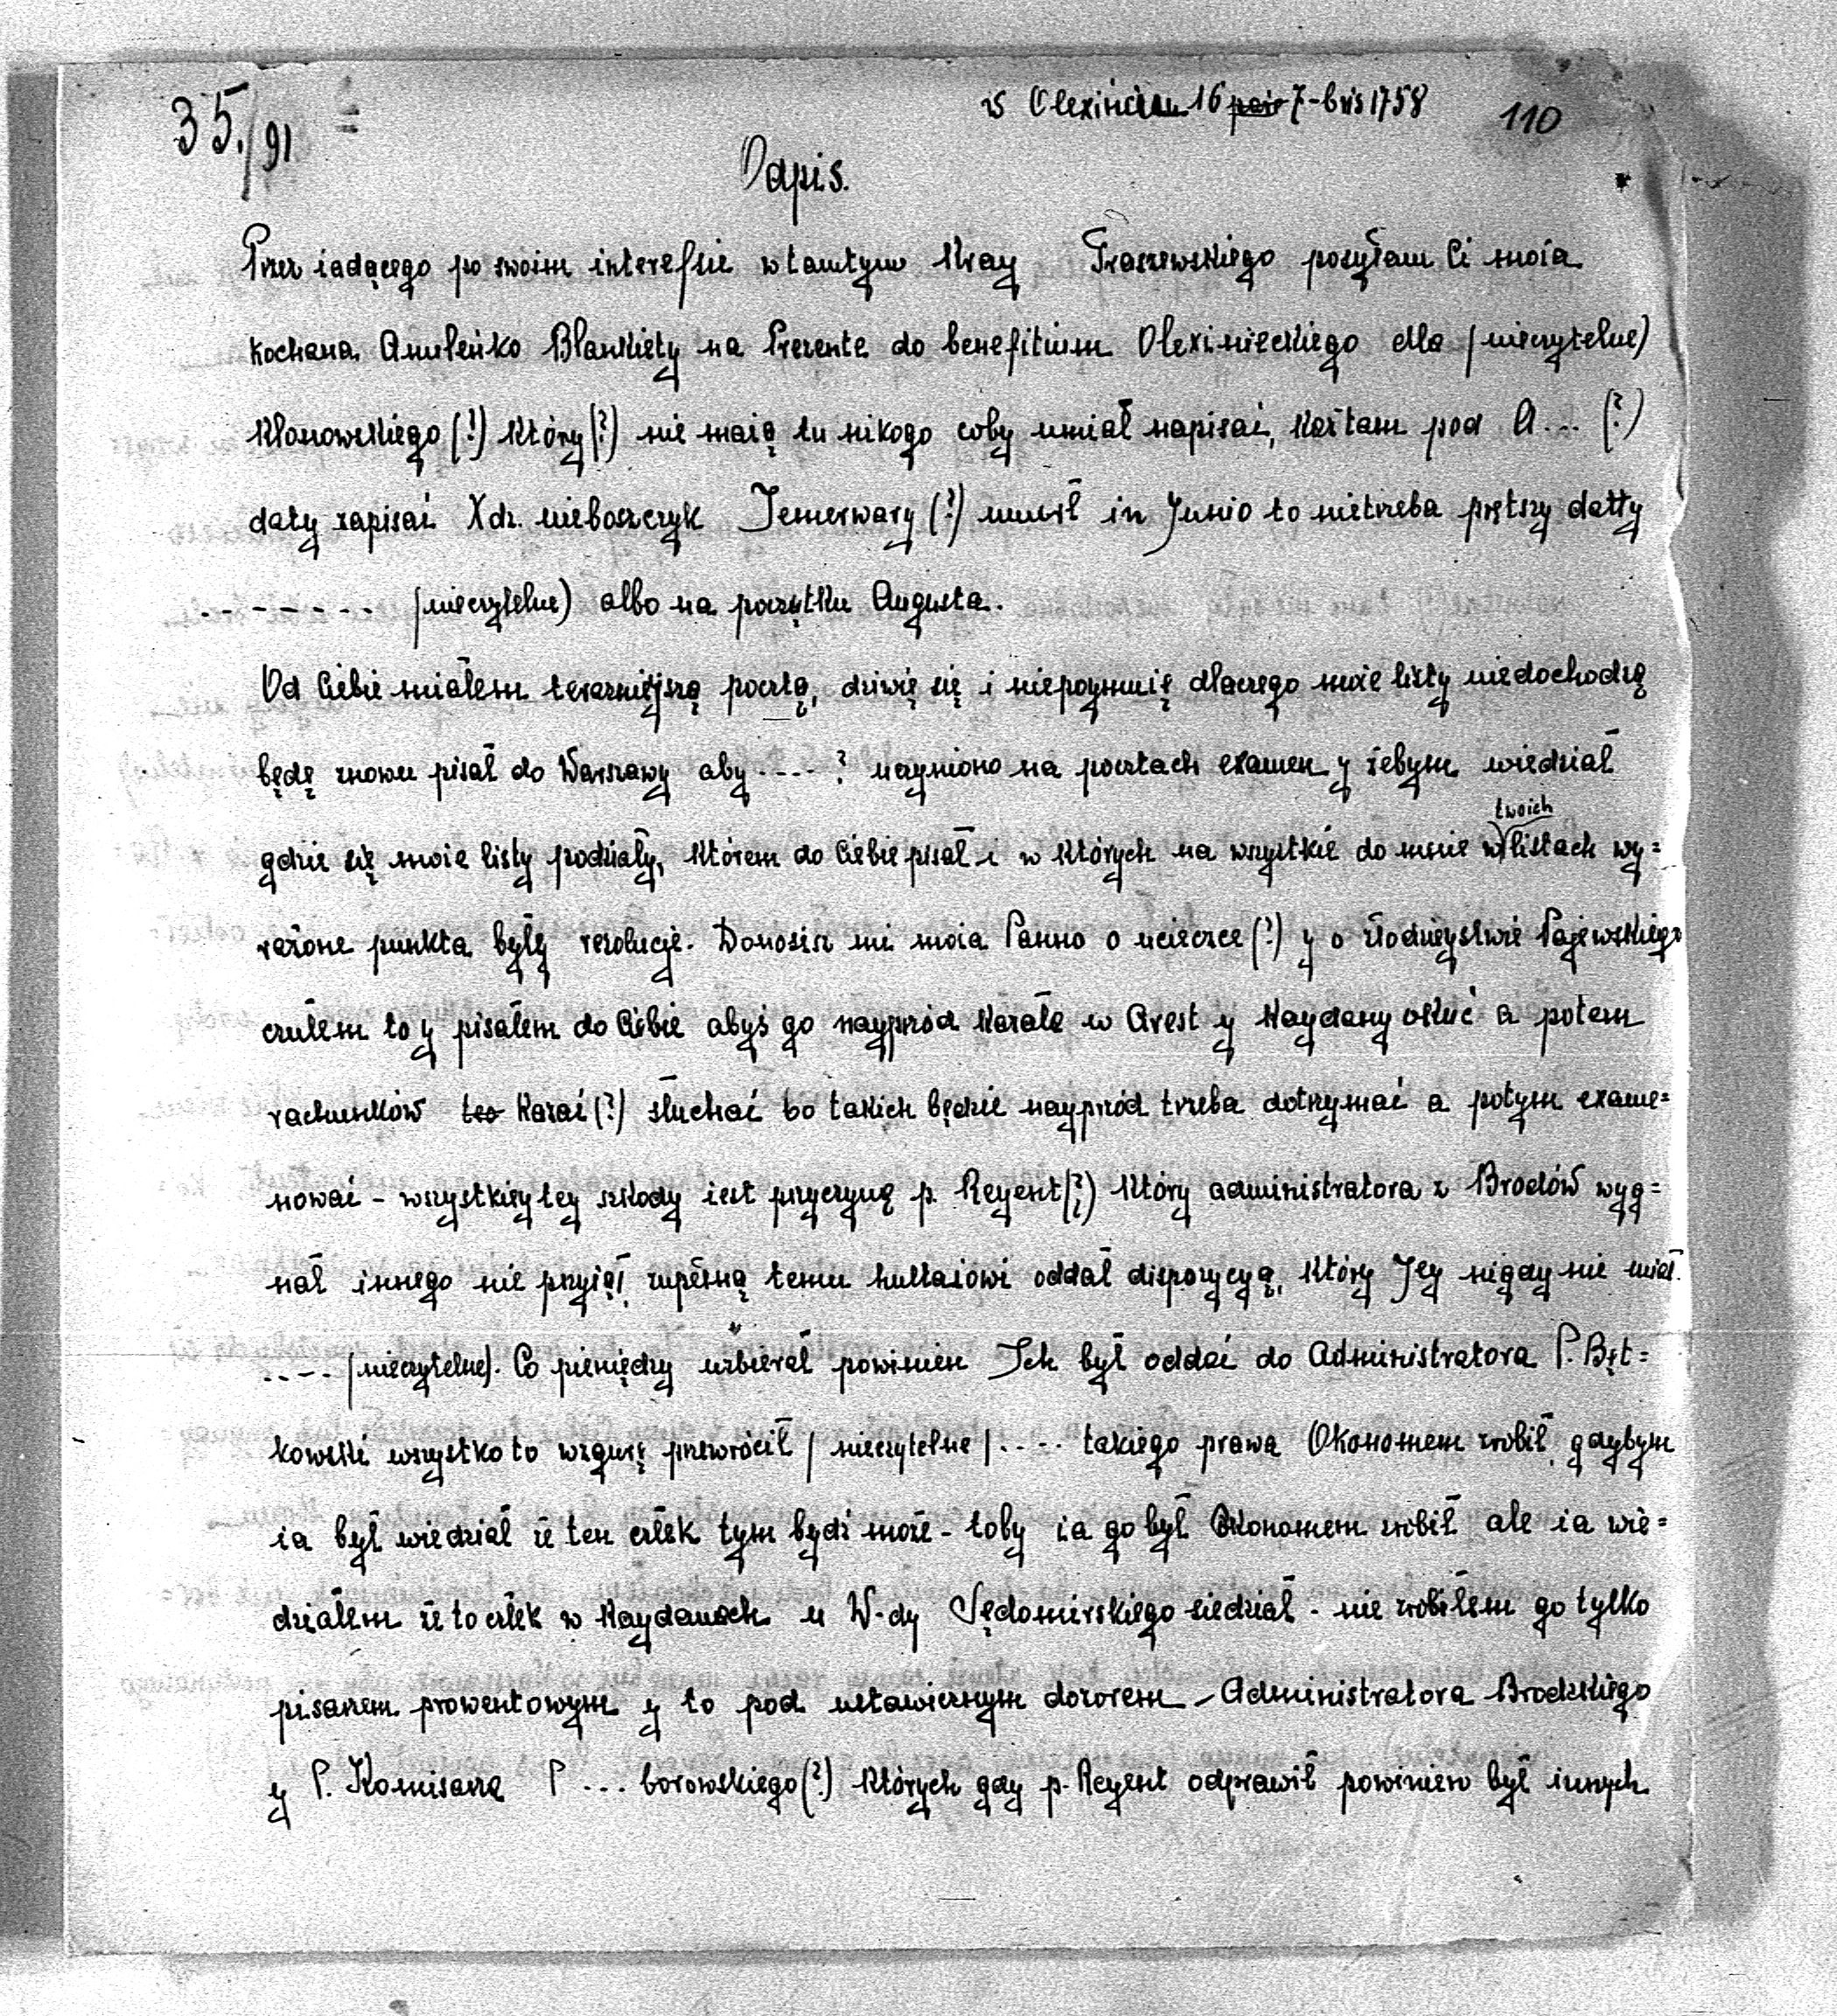 35./91
w Olexińcu 16 7-bris 1758
110
Odpis.
Przez iadącego po swoim interessie w tamtym Kray Traszewskiego posyłam Ci moia
kochana Anuleńko Blankiety na Prezente do benefitium Olexinieckiego dla (nieczytelne)
Kłonowskiego (!) Który (?) nie maią tu nikogo coby umiał napisać, każ tam pod A... (?)
daty zapisać X dz. nieboszczyk Jemerwary (?) umarł in Junio to nietrzeba datty
-------- (nieczytelne) albo na początku Augusta.
Od Ciebie miałem terazniejszą pocztę, dziwię się i niepoymuię dlaczego moie listy niedochodzą
będę znowu pisał do Warszawy aby ....? uczyniono na pocztach examen y żebym wiedział
gdzie się moie listy podziały, Którem do Ciebie pisał i w Których na wszystkie do mnie w twoich listach wy=
rażone punkta były rezolucje. Donosisz mi moia Panno o ucieczce (?) y o złodzieystwie Pajewskiego
czułem to y pisałem do Ciebie abyś go nayprzód Kazała w Arest y Kaydany okuć a potem
rachunków Kazać (?) słuchać bo takich będzie nayprzód trzeba dotrzymać a potym exame=
nować - wszystkiey tey szkody iest przyczyną p. Reyent (?) Który administratora z Brodów wyg=
nał innego nie przyiął, zupełną temu hultaiowi oddał dispozycyą, Który Jey nigdy nie miał.
.... (nieczytelne). Co pieniędzy uzbierał powinien Ich był oddać do Administratora P. Bęt=
kowski wszystko to wzgurę przewrócił (nieczytelne) .... takiego prawa Okonomem zrobił, gdybym
ia był wiedział że ten człek tym bydź może - toby ia go był Okonomem zrobił ale ia wie=
działem że to człek w Kaydanach u W-dy Sędomirskiego siedział - nie zrobiłem go tylko
pisarzem prowentowym y to pod ustawicznym dozorem - Administratora Brodzkiego
y P. Komisarza P ... borowskiego (?) Których gdy p. Reyent odprawił powinien był innych